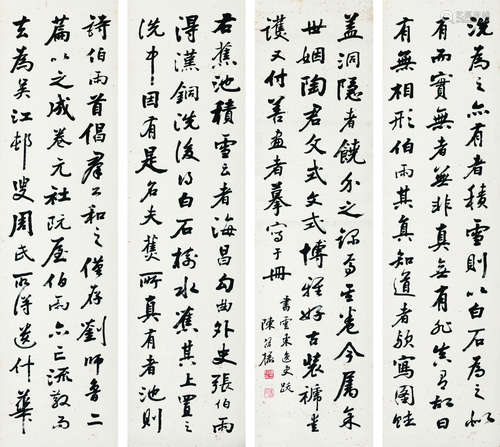 洗為之亦有者積雪則以白石為之如
有而實無者無非真無有非真有故曰
有無相形伯雨其真知道者歟寫圖賦
蓋洞隱者饒介之卷今屬余
世姻陶君文式文式博雅好古裝褫
護又付善畫者摹寫于冊
書雲東逸史跋
陳
右蕉池積雪云者海昌句曲外史張伯雨
得漢銅洗後得白石樹水蕉其上置之
洗中因有是名夫蕉所真有者池則
詩伯雨首倡羣公和之僅存劉師魯二
篇以之成卷元社既屋伯雨亦亡流散而
去為吳江邨叟周氏所得遂什華